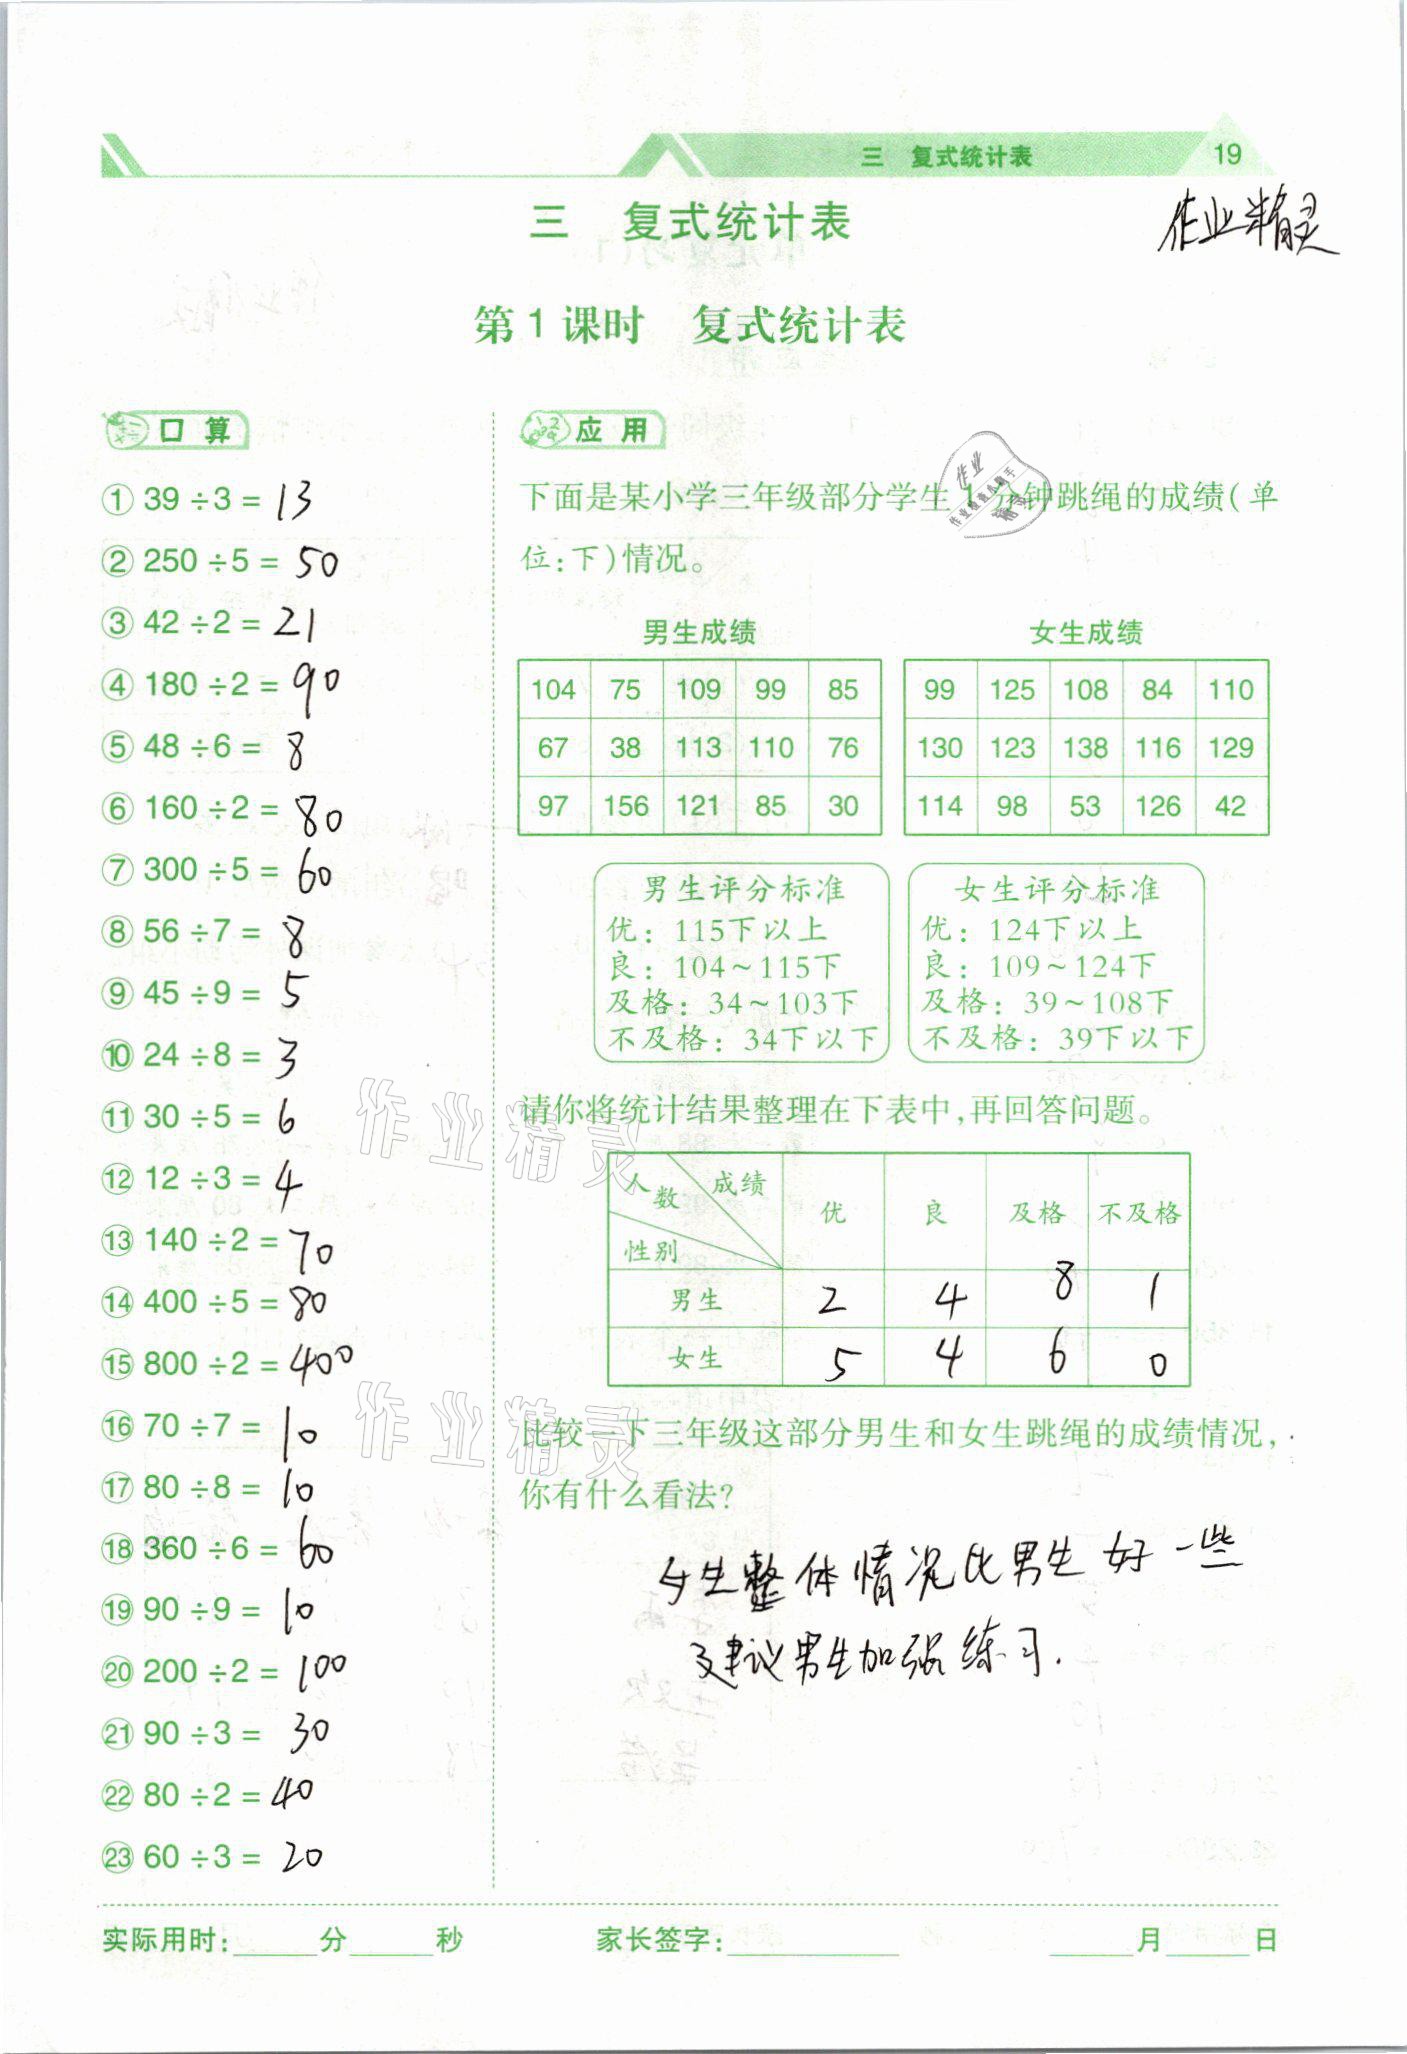 三 复式统计表 19
三 复式统计表
作业精灵
第1课时 复式统计表
口算
① 39÷3= 13
② 250÷5= 50
③ 42÷2= 21
④ 180÷2= 90
⑤ 48÷6= 8
⑥ 160÷2= 80
⑦ 300÷5= 60
⑧ 56÷7= 8
⑨ 45÷9= 5
⑩ 24÷8= 3
⑪ 30÷5= 6
⑫ 12÷3= 4
⑬ 140÷2= 70
⑭ 400÷5= 80
⑮ 800÷2= 400
⑯ 70÷7= 10
⑰ 80÷8= 10
⑱ 360÷6= 60
⑲ 90÷9= 10
⑳ 200÷2= 100
㉑ 90÷3= 30
㉒ 80÷2= 40
㉓ 60÷3= 20
应用
下面是某小学三年级部分学生1分钟跳绳的成绩(单
位:下)情况。
男生成绩
104 75 109 99 85
67 38 113 110 76
97 156 121 85 30
女生成绩
99 125 108 84 110
130 123 138 116 129
114 98 53 126 42
男生评分标准
优: 115下以上
良: 104~115下
及格: 34~103下
不及格: 34下以下
女生评分标准
优: 124下以上
良: 109~124下
及格: 39~108下
不及格: 39下以下
请你将统计结果整理在下表中,再回答问题。
人数 成绩 性别 优 良 及格 不及格
男生 2 4 8 1
女生 5 4 6 0
比较一下三年级这部分男生和女生跳绳的成绩情况,
你有什么看法?
女生整体情况比男生好一些
建议男生加强练习.
作业精灵
作业精灵
实际用时:____分____秒 家长签字:________ ____月____日